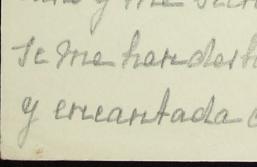 y me
se me han des
y encantada